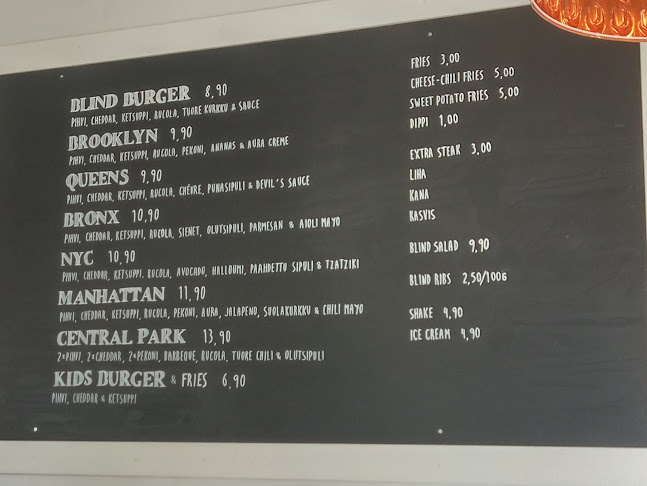 BLIND BURGER 8,90
PIHVI, CHEDDAR, KETSUPPI, RUCOLA, TUORE KURKKU & SAUCE
BROOKLYN 9,90
PIHVI, CHEDDAR, KETSUPPI, RUCOLA, PEKONI, ANANAS & AURA CREME
QUEENS 9,90
PIHVI, CHEDDAR, KETSUPPI, RUCOLA, CHÉVRE, PUNASIPULI & DEVIL'S SAUCE
BRONX 10,90
PIHVI, CHEDDAR, KETSUPPI, RUCOLA, SIENET, OLUTSIPULI, PARMESAN & AIOLI MAYO
NYC 10,90
PIHVI, CHEDDAR, KETSUPPI, RUCOLA, AVOCADO, HALLOUMI, PAAHDETTU SIPULI & TZATZIKI
MANHATTAN 11,90
PIHVI, CHEDDAR, KETSUPPI, RUCOLA, PEKONI, AURA, JALAPENO, SUOLAKURKKU & CHILI MAYO
CENTRAL PARK 13,90
2×PIHVI, 2×CHEDDAR, 2×PEKONI, BARBEQUE, RUCOLA, TUORE CHILI & OLUTSIPULI
KIDS BURGER & FRIES 6,90
PIHVI, CHEDDAR & KETSUPPI
FRIES 3,00
CHEESE-CHILI FRIES 5,00
SWEET POTATO FRIES 5,00
DIPPI 1,00
EXTRA STEAK 3,00
LIHA
KANA
KASVIS
BLIND SALAD 9,90
BLIND RIBS 2,50/100G
SHAKE 4,90
ICE CREAM 4,90